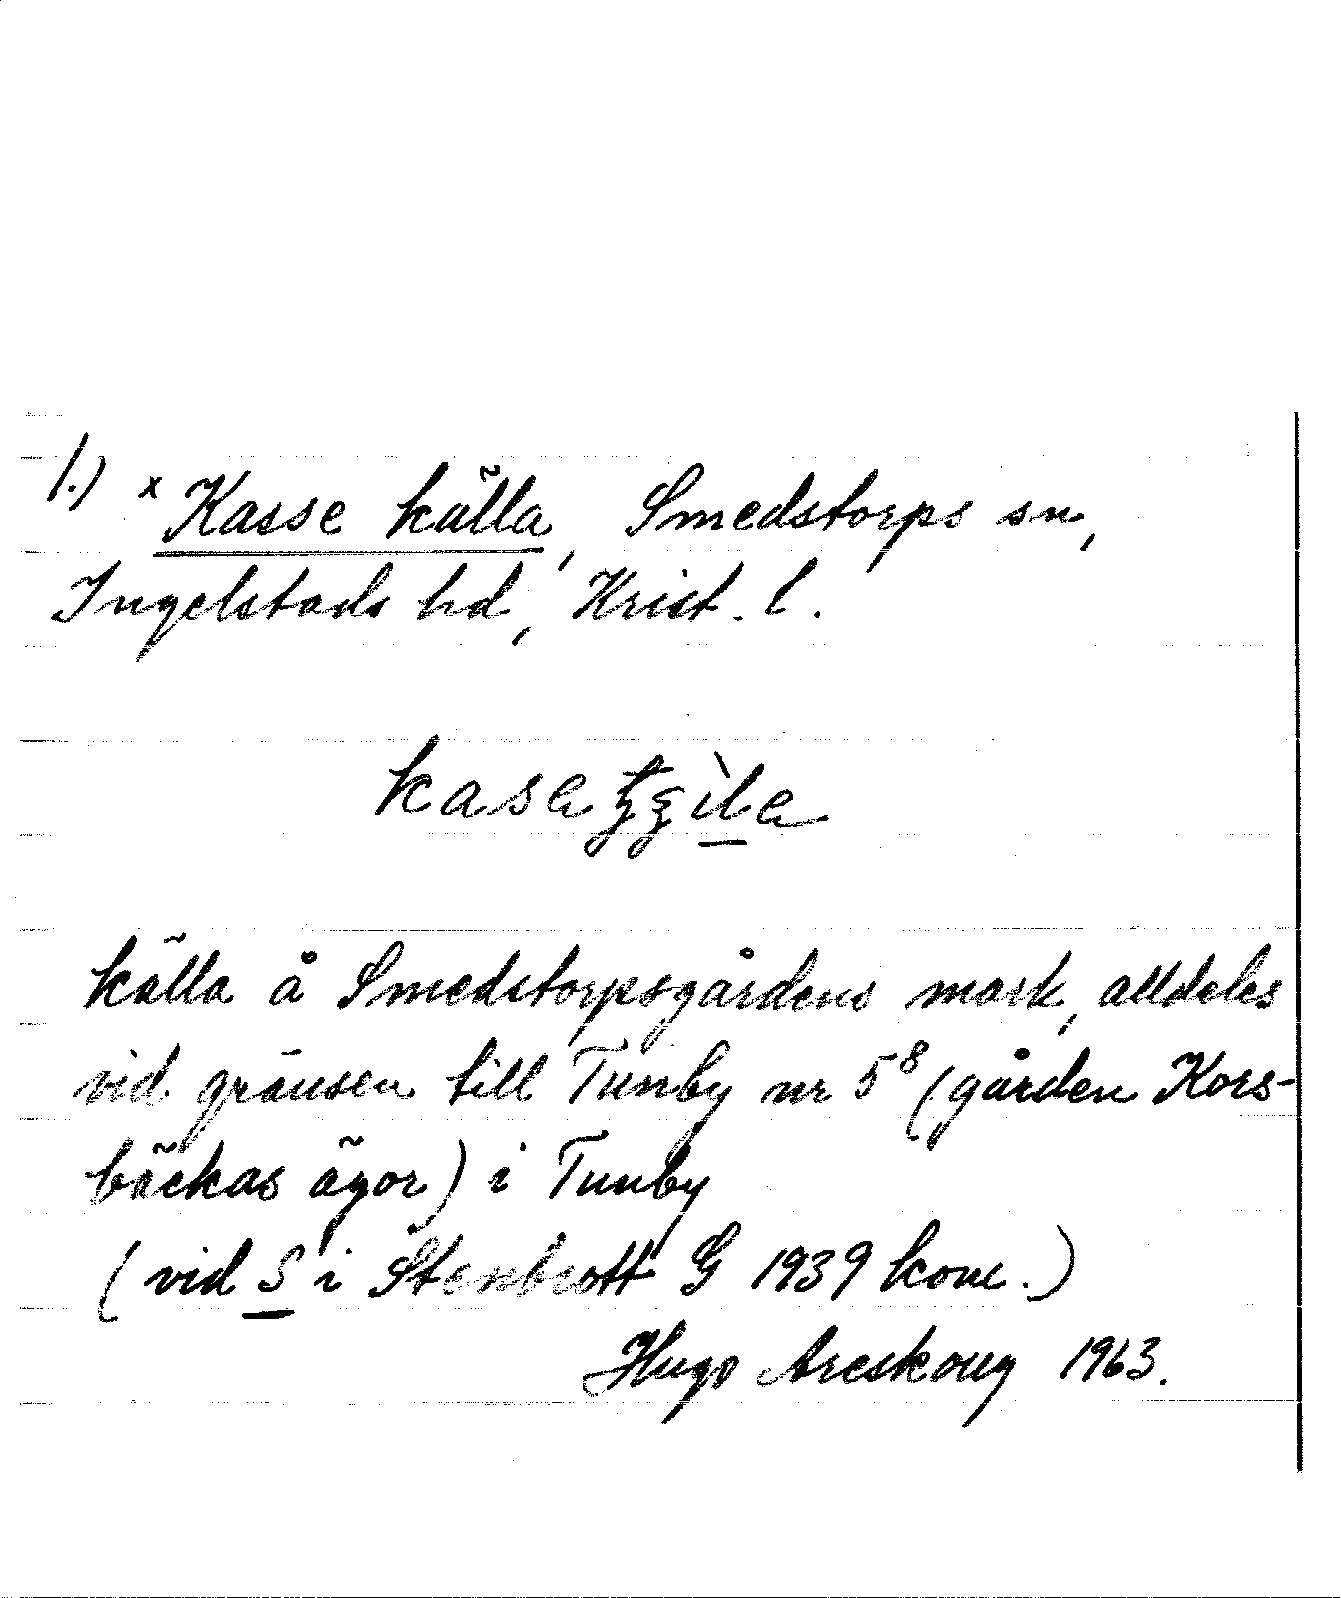 1.) x Kasse källa, Smedstorps sn,
Ingelstads hd, Krist. l.
källa å Smedstorpsgårdens mark, alldeles
vid gränsen till Tunby nr 5⁸ (gården Kors-
bäckas ägor) i Tunby
(vid S i Stenbrott G 1939 kom.)
Hugo Areskoug 1963.